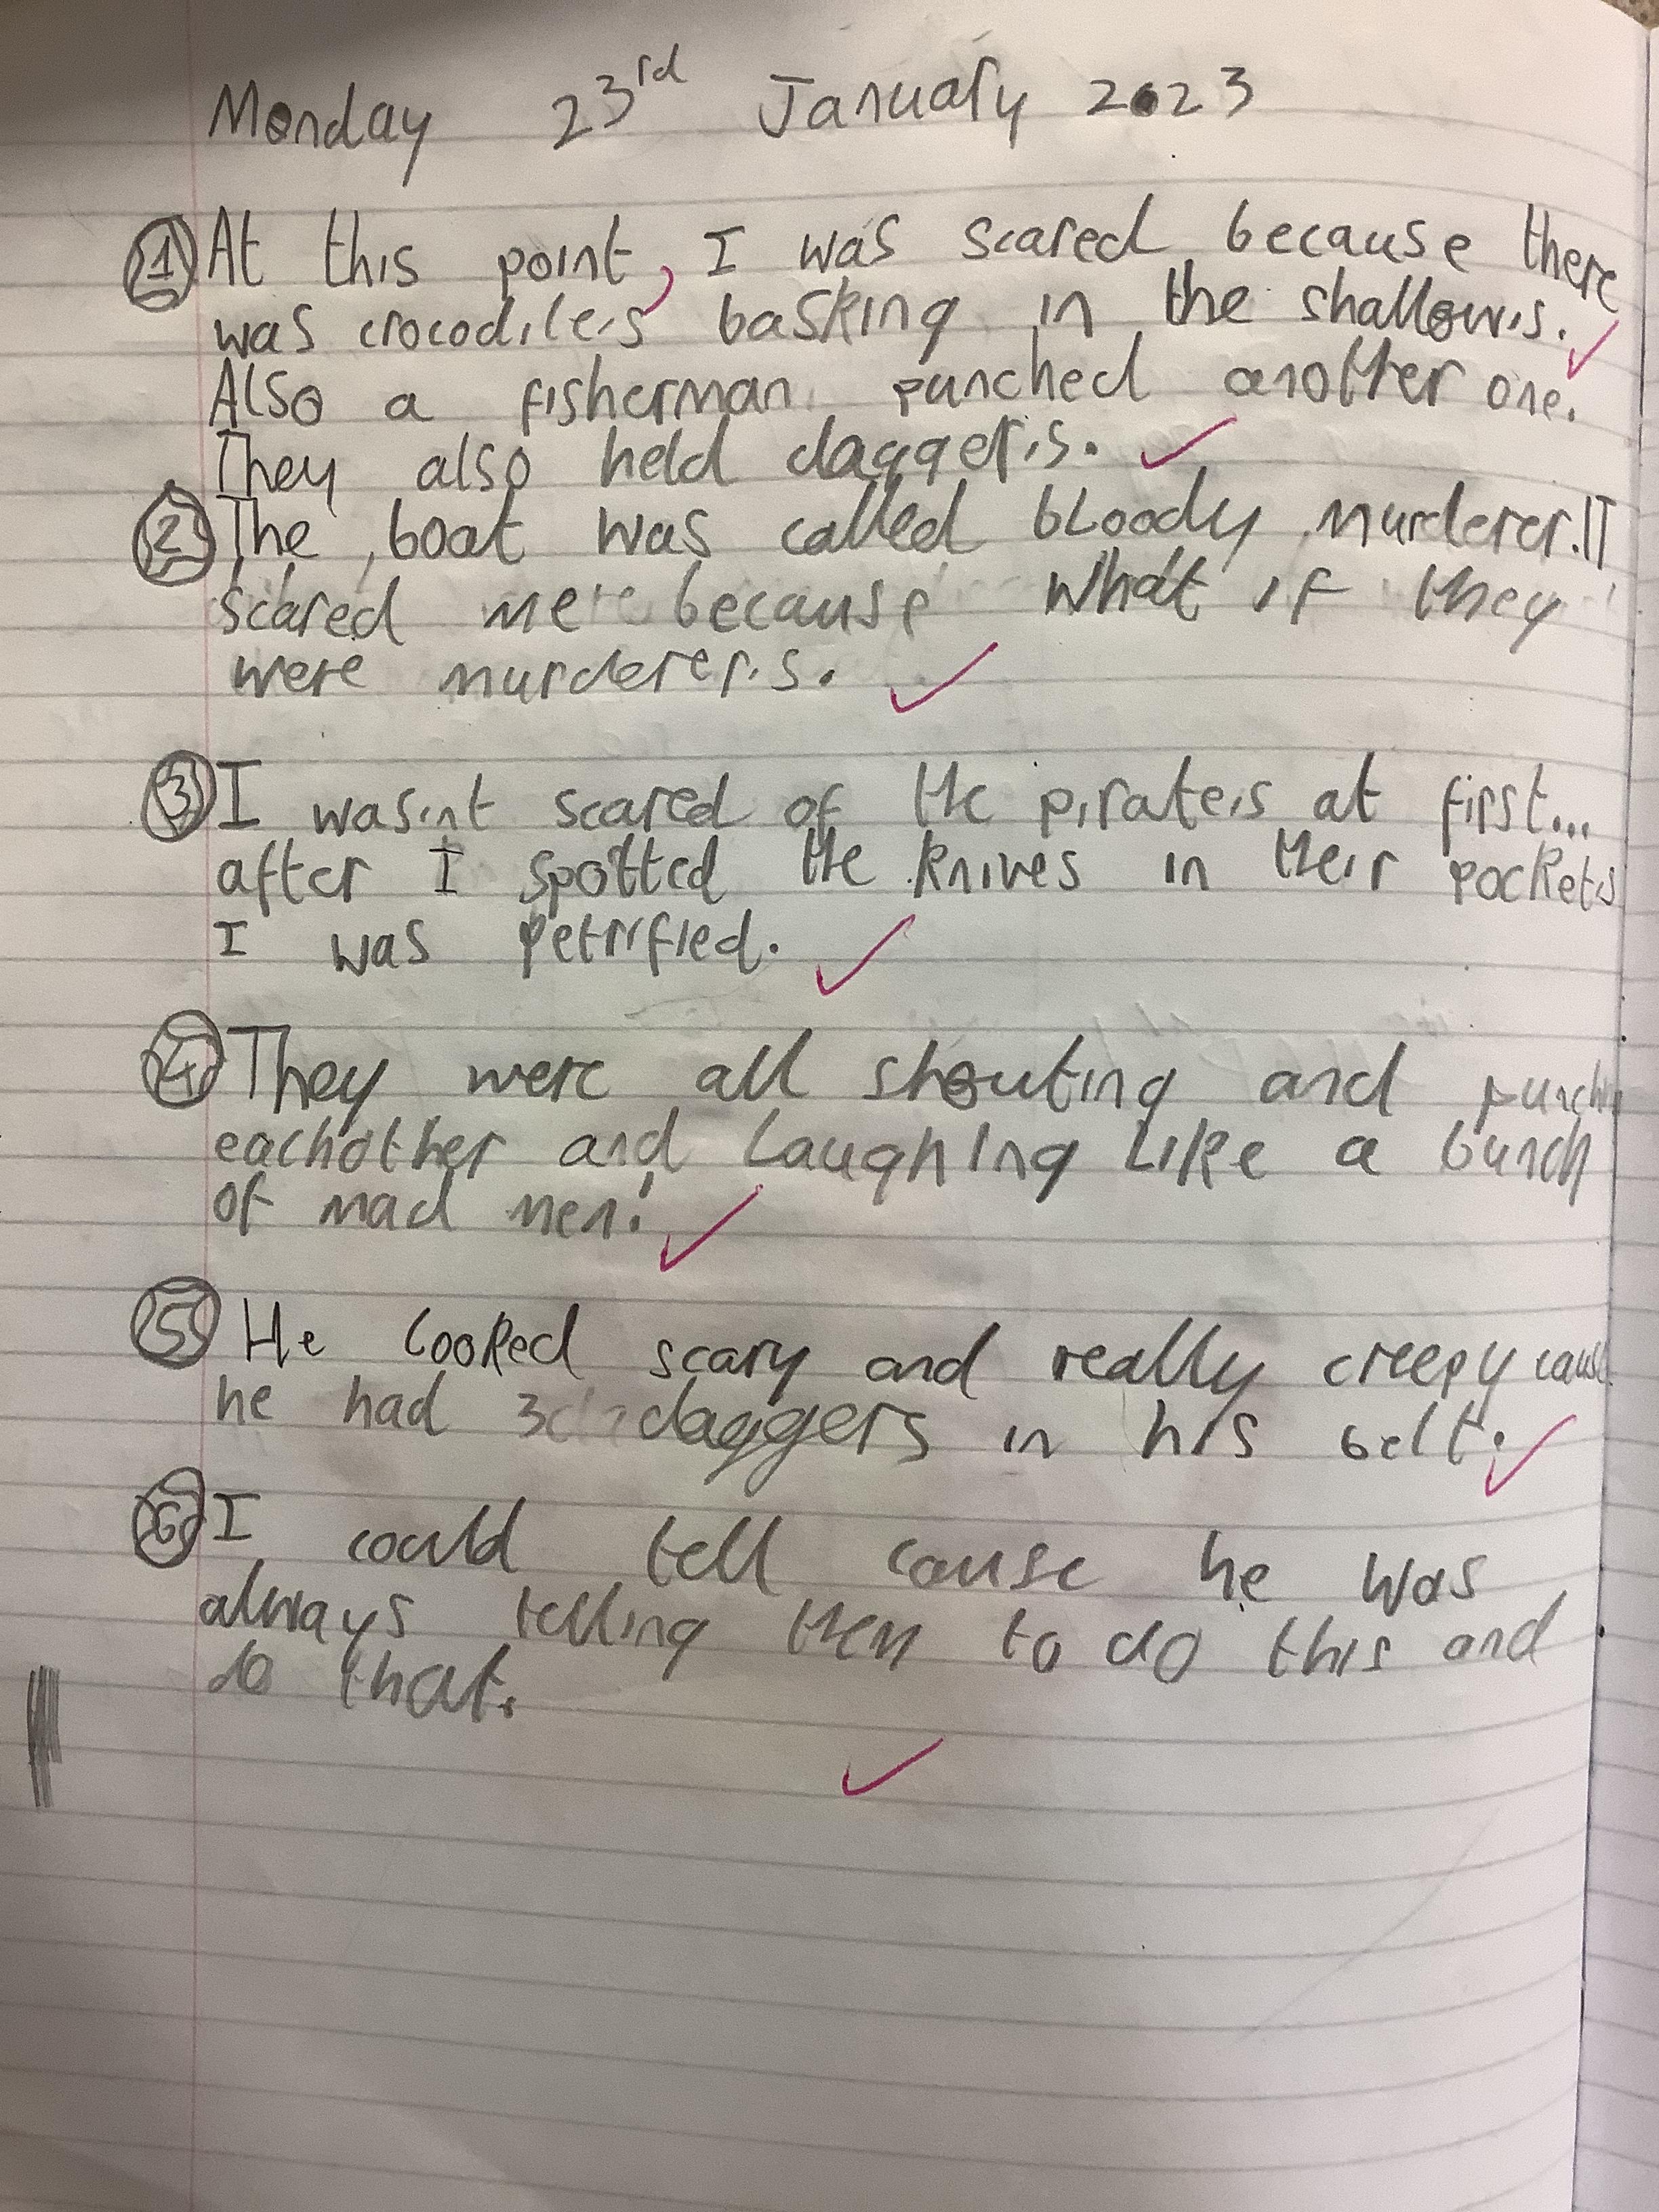 Monday 23rd January 2023
1 At this point, I was scared because there
was crocodiles basking in the shallows.
Also a fisherman punched another one.
They also held daggers.
2 The boat was called bloody murderer. IT
scared me because what if they
were murderers.
3 I wasn't scared of the pirates at first...
after I spotted the knives in their pockets
I was petrified.
4 They were all shouting and punching
eachother and laughing like a bunch
of mad men!
5 He looked scary and really creepy cause
he had 3 daggers in his belt.
6 I could tell cause he was
always telling them to do this and
do that.